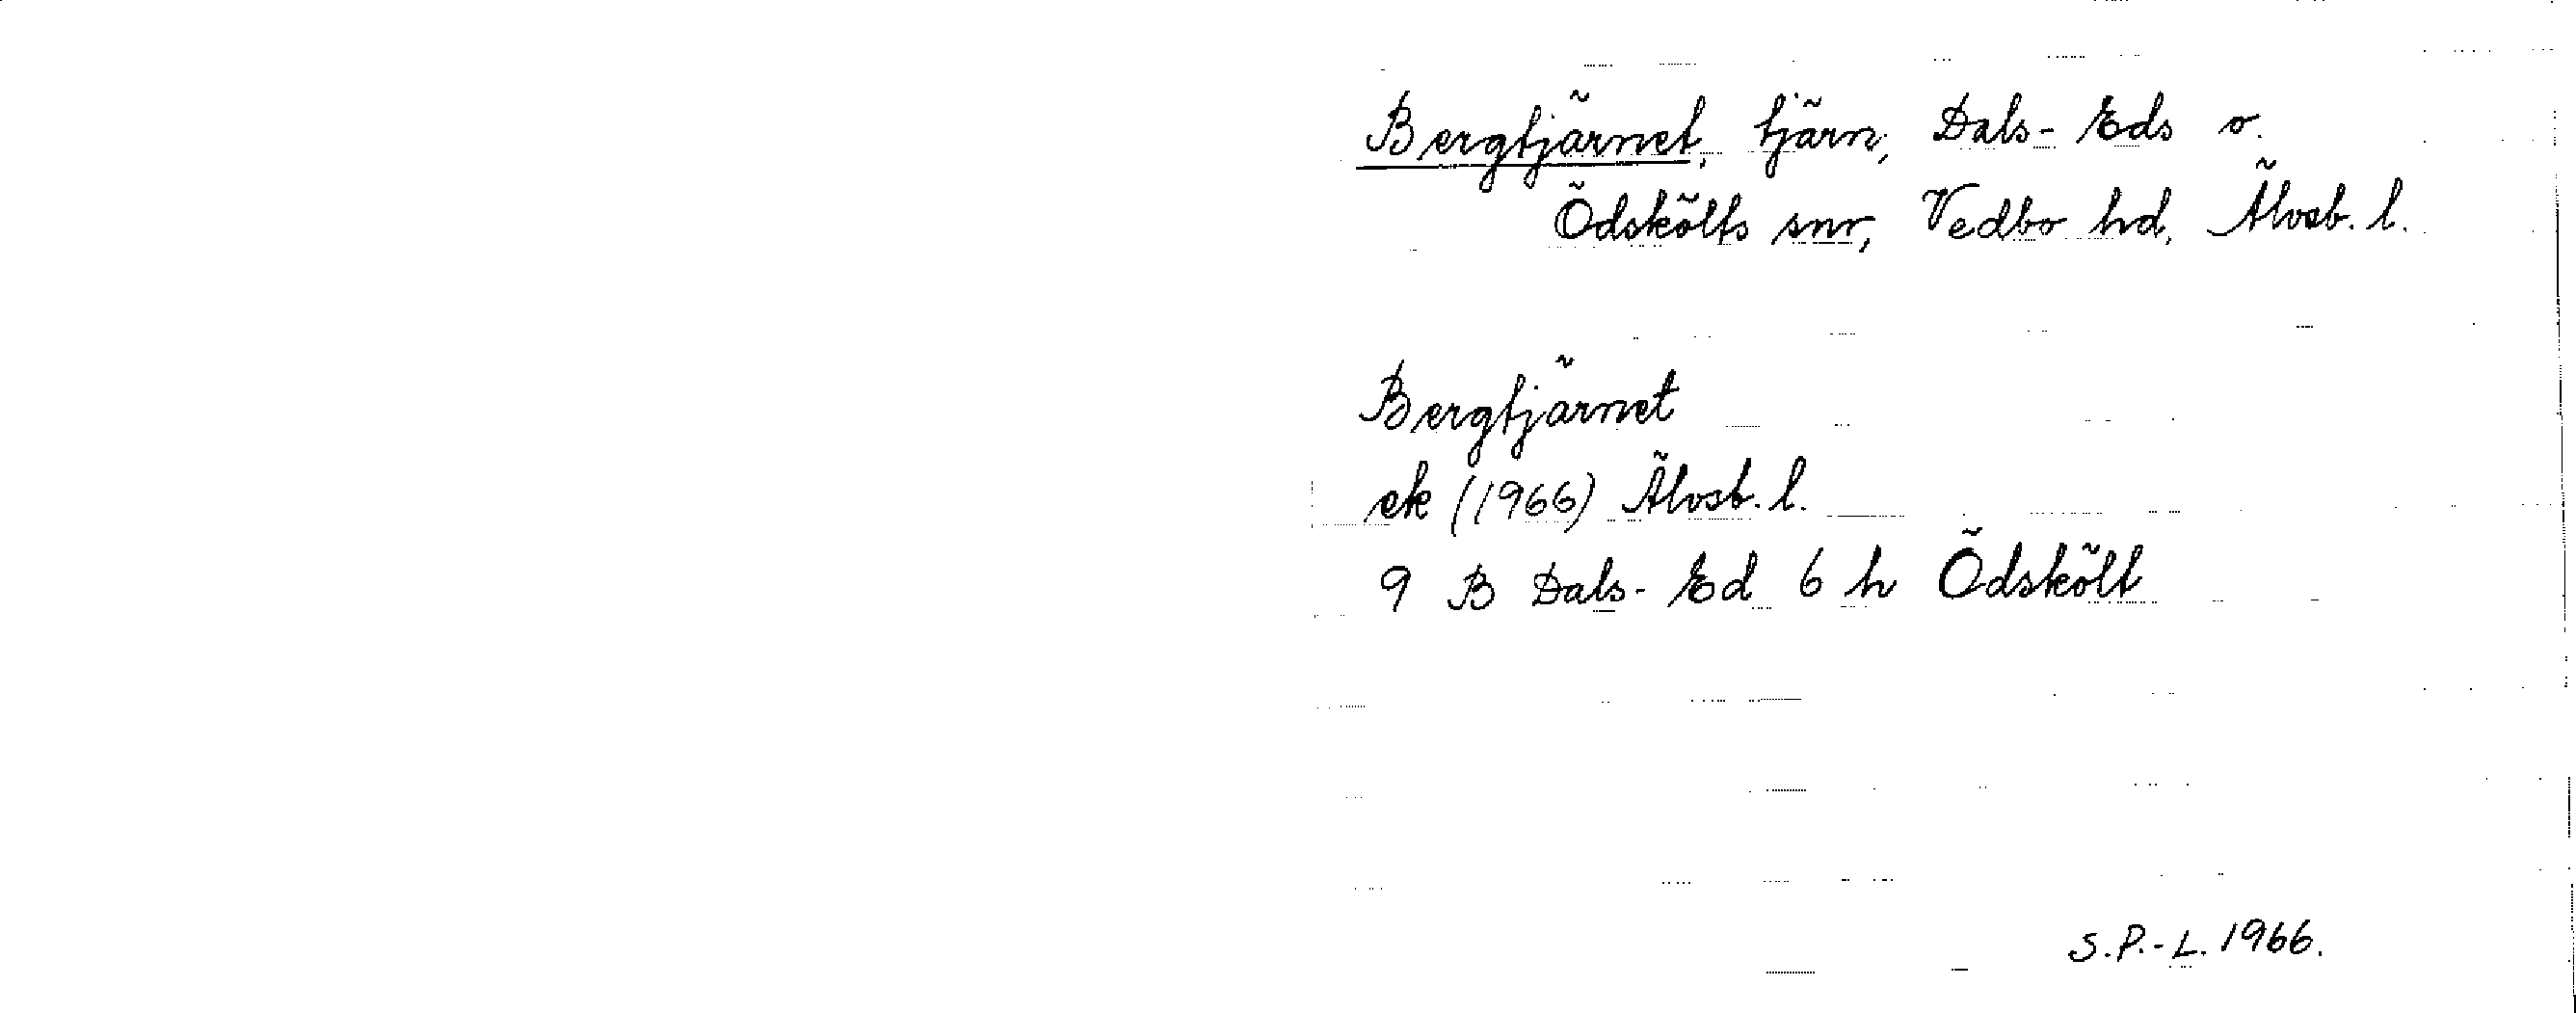 Bergtjärnet, tjärn, Dals-Eds o.
Ödskölts snr, Vedbo hd, Älvsb. l.
Bergtjärnet
ek (1966) Älvsb. l.
9 B Dals-Ed 6 h Ödskölt
S.P.-L. 1966.